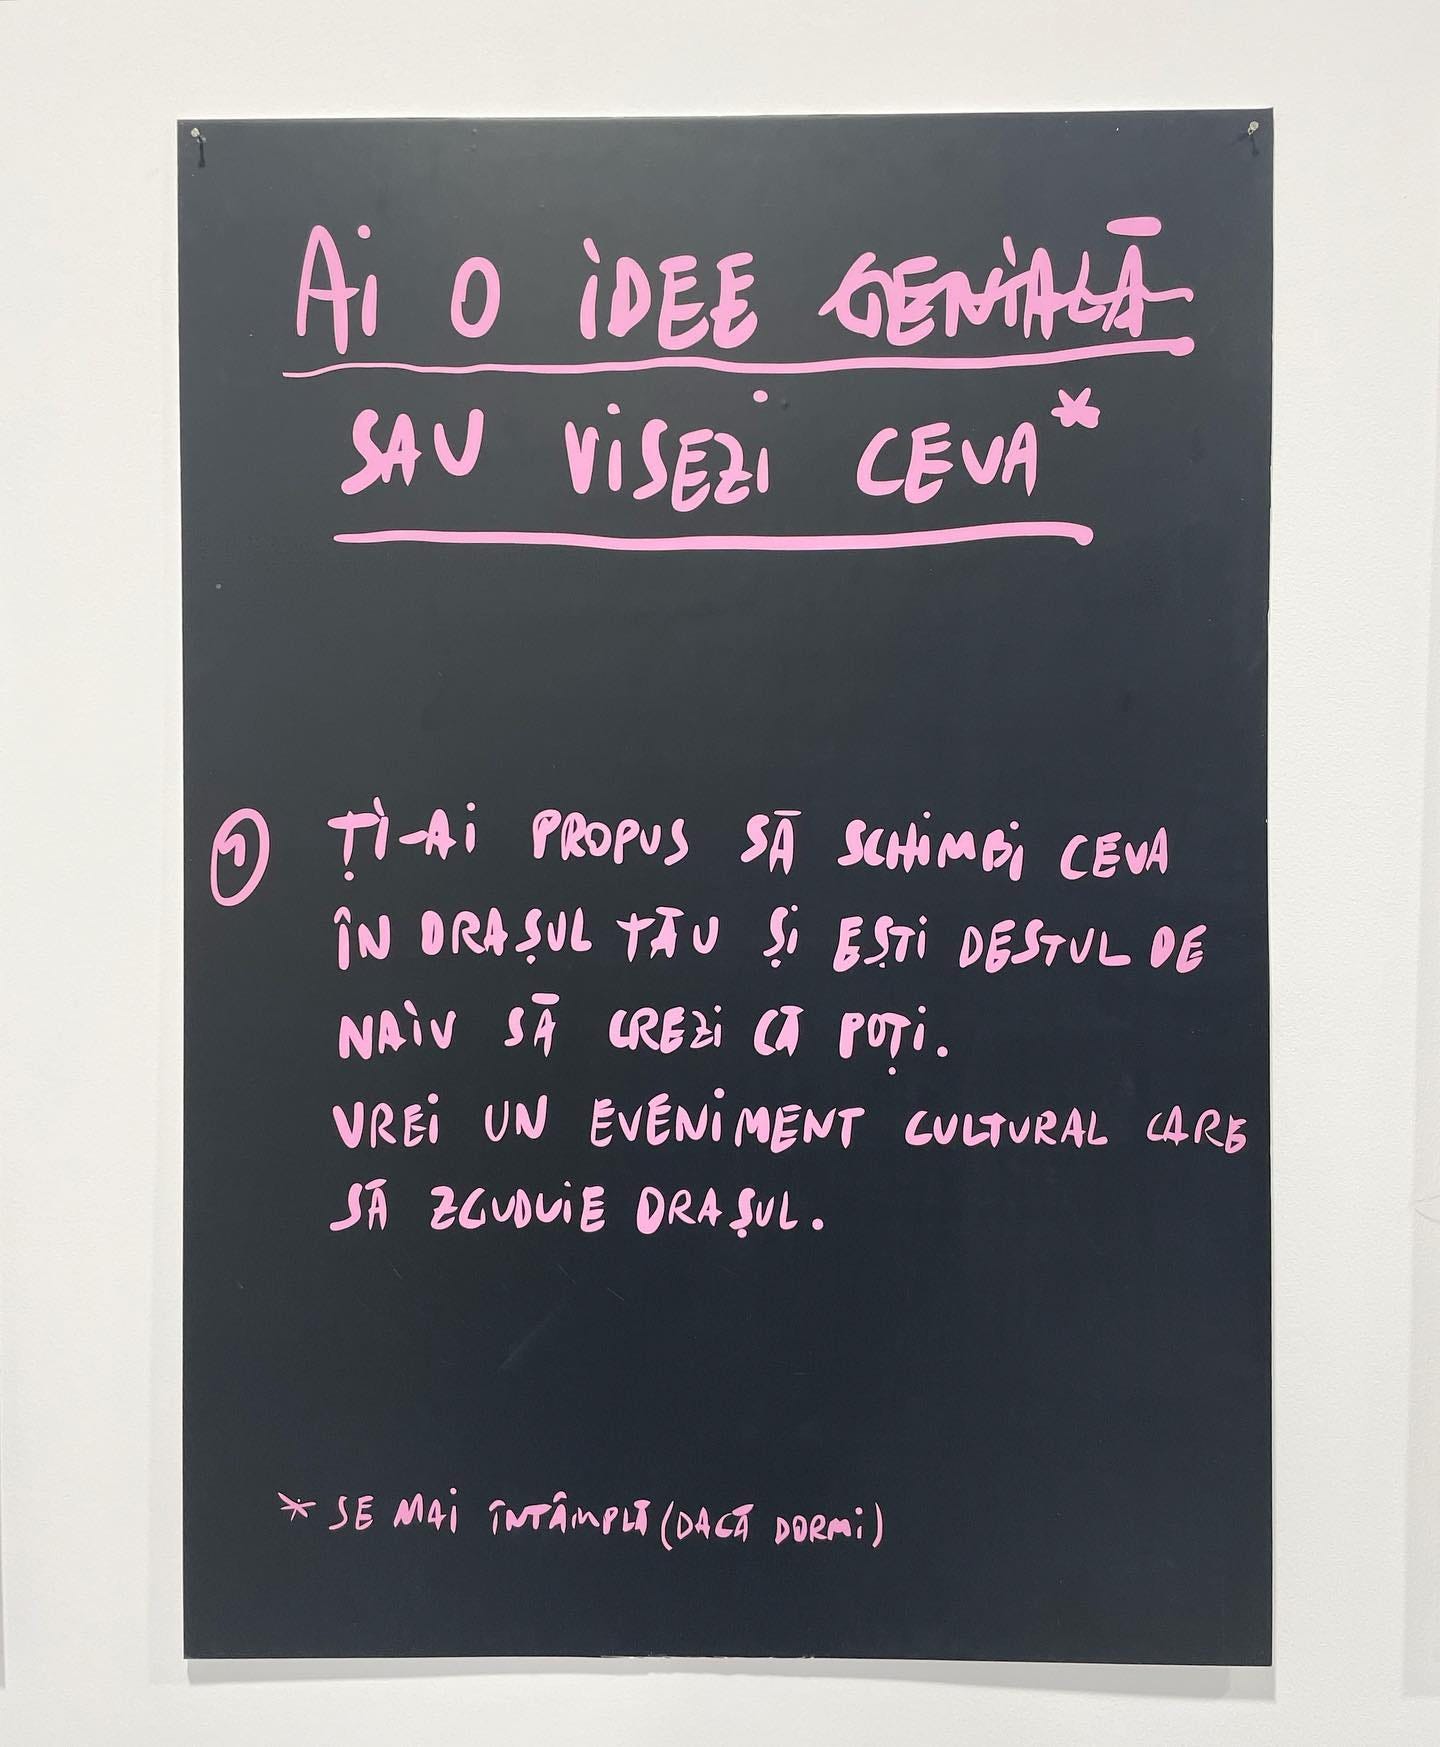 Ai O IDEE GENIALĂ
SAU VISEZI CEVA*
1 ȚI-AI PROPUS SĂ SCHIMBI CEVA
ÎN ORAȘUL TĂU ȘI EȘTI DESTUL DE
NAIV SĂ CREZI CĂ POȚI.
VREI UN EVENIMENT CULTURAL CARE
SĂ ZGUDUIE ORAȘUL.
* SE MAI ÎNTÂMPLĂ (DACĂ DORMI)